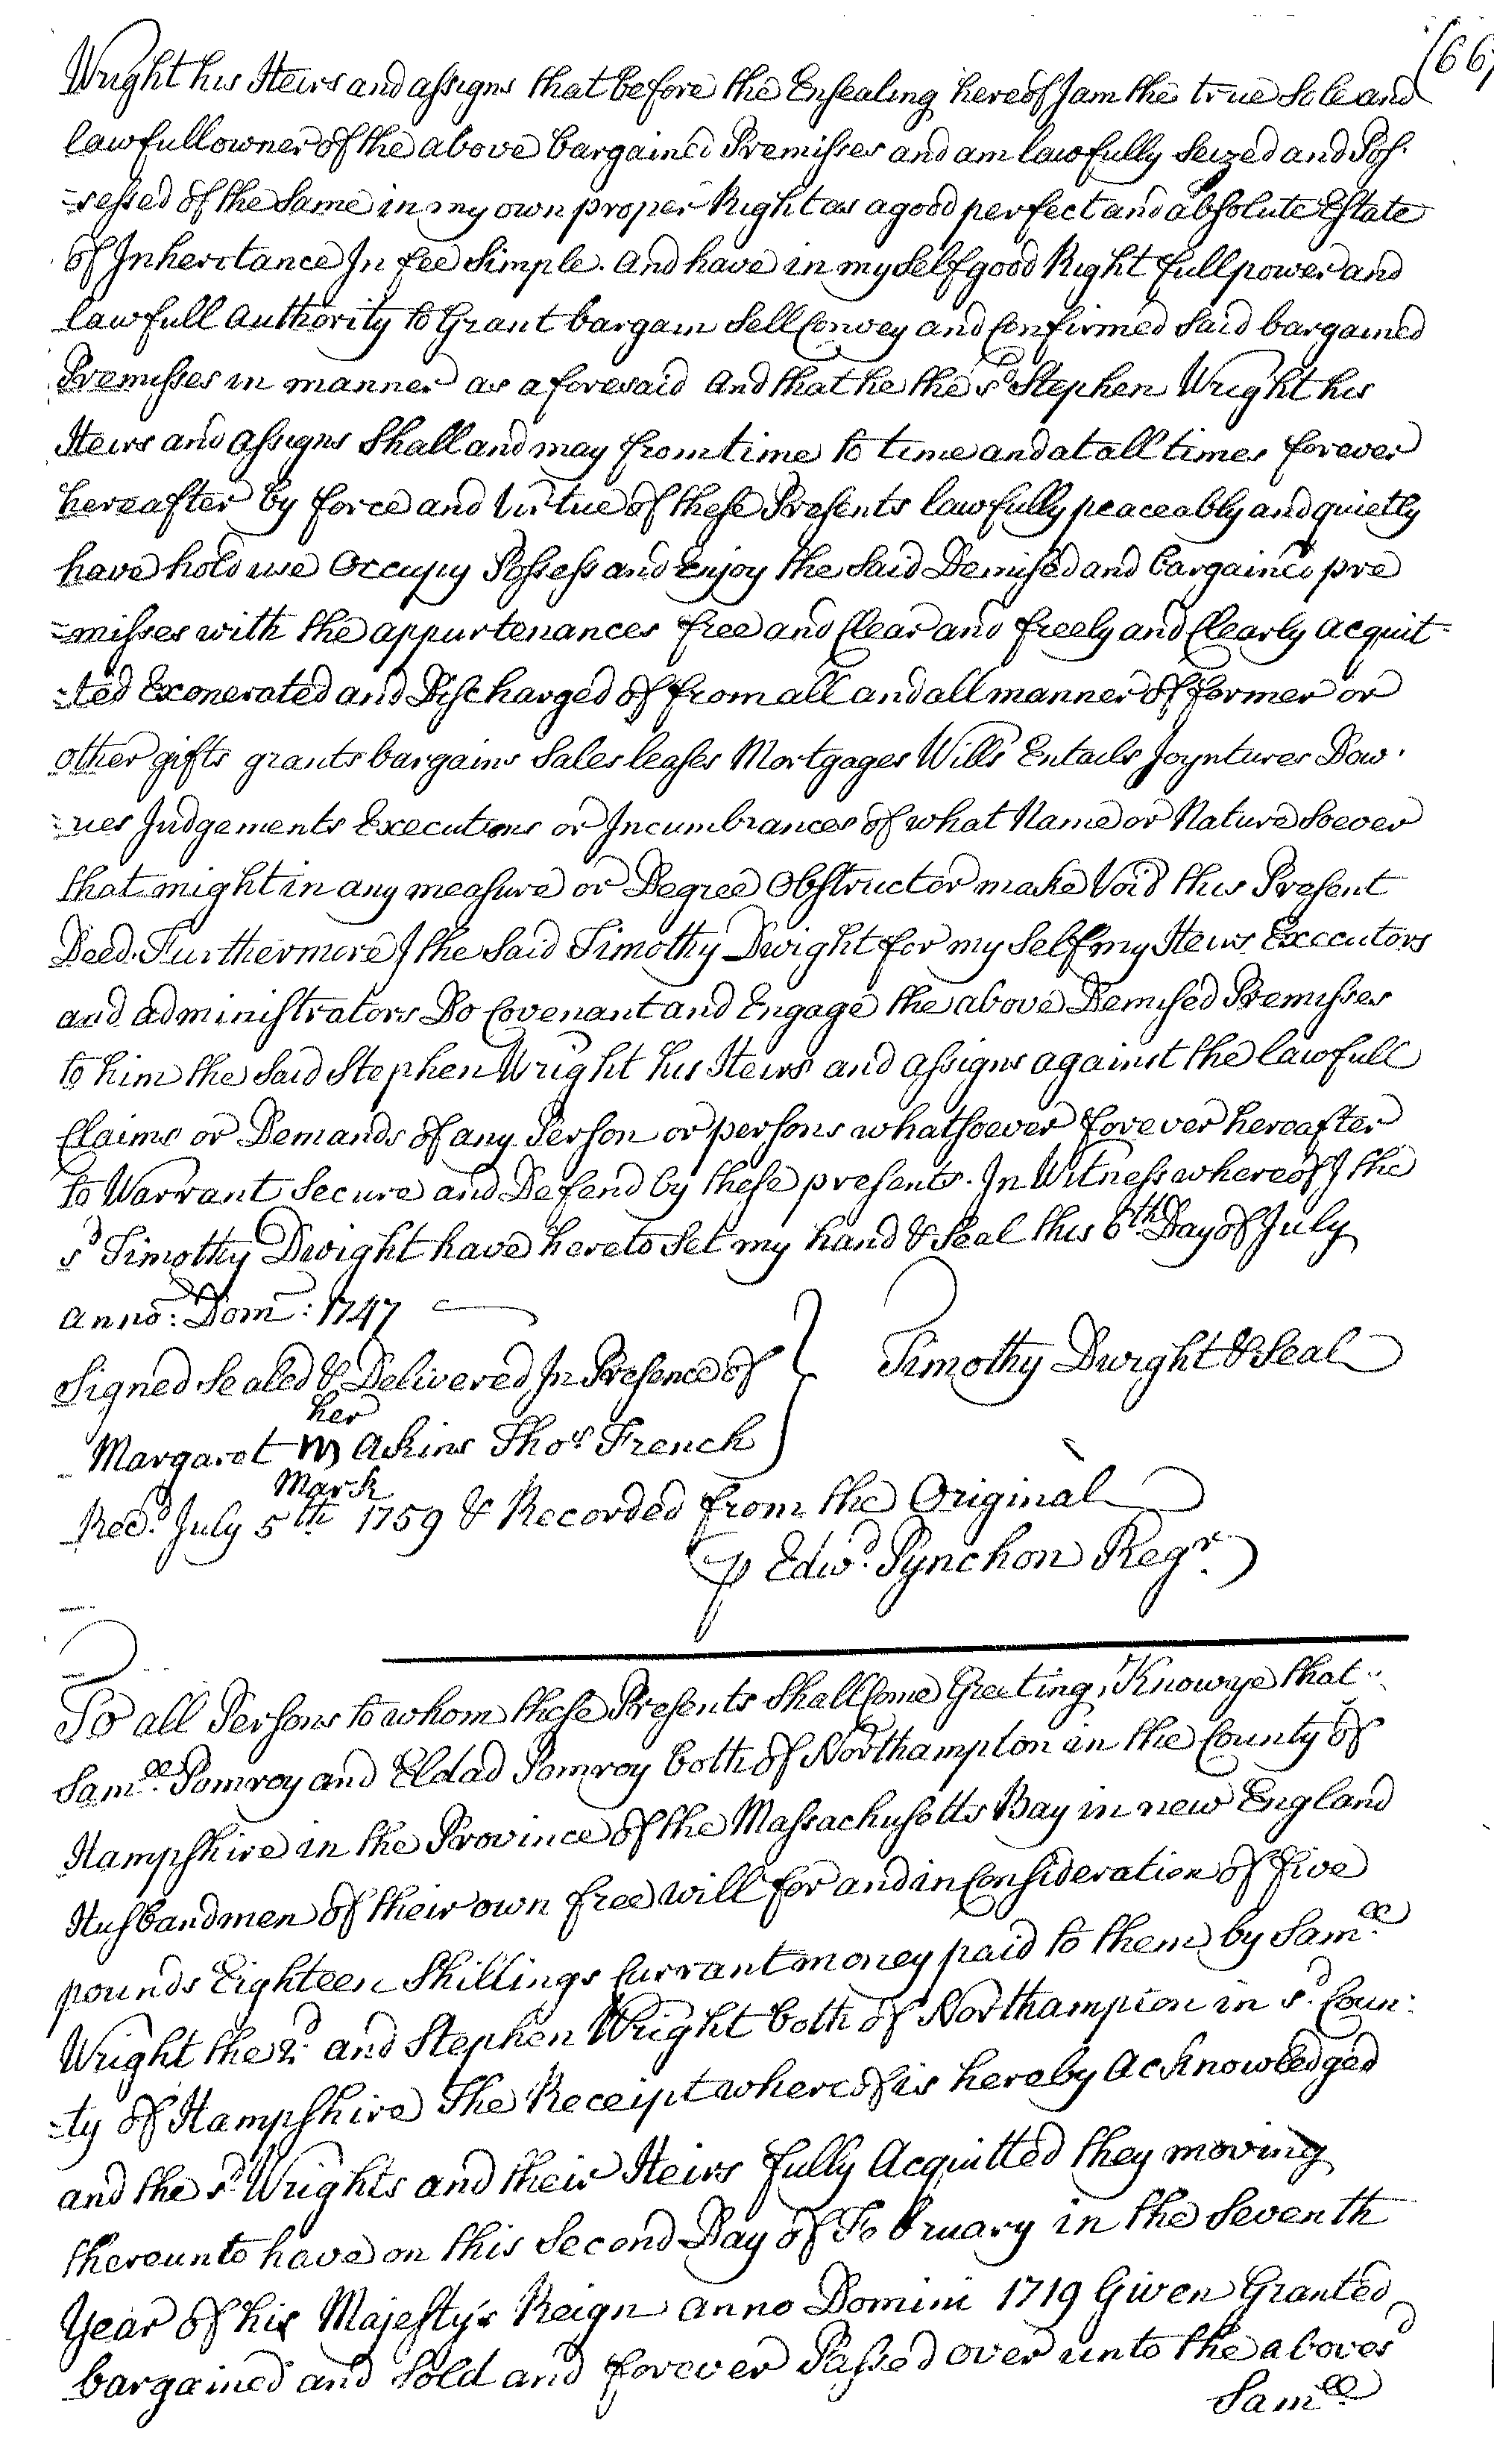 (66)
Wright his Heirs and assigns that before the Ensealing hereof I am the true Sole and
lawfull owner of the above bargained Premisses and am lawfully Seized and Pos-
-sessed of the Same in my own proper Right as a good perfect and absolute Estate
of Inheritance In fee Simple. And have in my Self good Right full power and
lawfull Authority to Grant bargain Sell Convey and Confirmed Said bargained
Premisses in manner as aforesaid And that he the sd Stephen Wright his
Heirs and assigns Shall and may from time to time and at all times forever
hereafter by force and Virtue of these Presents lawfully peaceably and quietly
have hold use Occupy Possess and Enjoy the Said Demised and bargained pre
-misses with the appurtenances free and Clear and freely and Clearly Acquit-
-ted Exonerated and Discharged of from all and all manner of former or
other gifts grants bargains Sales leases Mortgages Wills Entails Joyntures Dow-
-ries Judgements Executions or Incumbrances of what Name or Nature Soever
that might in any measure or Degree Obstruct or make Void this Present
Deed. Furthermore I the Said Timothy Dwight for my Self my Heirs Executors
and administrators Do Covenant and Engage the above Demised Premisses
to him the Said Stephen Wright his Heirs and assigns against the lawfull
Claims or Demands of any Person or persons whatsoever forever hereafter
to Warrant Secure and Defend by these presents. In Witness whereof I the
sd Timothy Dwight have hereto Set my hand & Seal this 6th Day of July
Anno: Dom: 1747
Signed Sealed & Delivered In Presence of } Timothy Dwight & Seal
her
Margaret m Akins Thos French
Mark
Recd July 5th 1759 & Recorded from the Original
P Edwd Pynchon Regr
To all Persons to whom these Presents Shall Come Greeting, Know ye that
Samll Pomroy and Eldad Pomroy both of Northampton in the County of
Hampshire in the Province of the Massachusetts Bay in new England
Husbandmen of their own free will for and in Consideration of five
pounds Eighteen Shillings Currant money paid to them by Samll
Wright the 2d and Stephen Wright both of Northampton in sd Coun-
-ty of Hampshire The Receipt whereof is hereby Acknowledged
and the sd Wrights and their Heirs fully Acquitted they moving
thereunto have on this Second Day of February in the Seventh
Year of his Majesty's Reign anno Domini 1719 Given Granted
bargained and Sold and forever Passed over unto the above sd
Samll